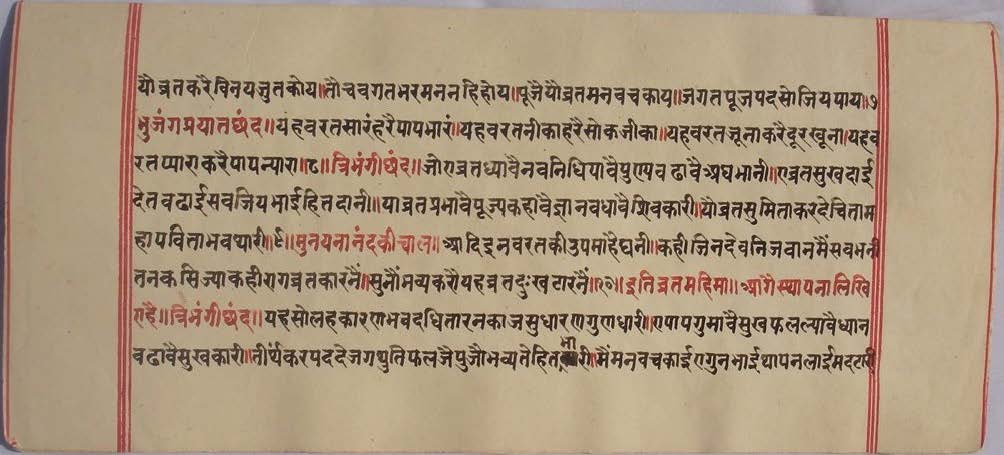 यौ व्रतकरैविनयजुतकोय॥तौचवगतभरमननहिहोय॥पूजैयौव्रतमनवचकाय॥जगतपूजपदसोजियपाय॥७
भुजंगप्रयातछंद॥यहवरतसारंहरैपापभारं॥यहवरतनीकाहरैसोकजीका॥यहवरतजूनाकरैदूरखूना॥यहव
रतप्याराकरैपापन्यारा॥८॥त्रिभंगीछंद॥जोएव्रतध्यावैनवनिधियांवैपुण्यवढावैअघभानी॥एव्रतसुखदाई
देतवढाईसवजियभाईहितदानी॥याव्रतप्रभावैपूज्यकहावैज्ञानवधावैशिवकारी॥यौव्रतसुमिताकरदेचिताम
हापविताभवथारी॥९॥मुनयनानंदकीचाल॥आदिइनवरतकीउपमाहैघनी॥कहीजिनदेवनिजवानमैंसवभनी
तनकसिज्याकहीरागव्रतकारनैं॥सुनौंभव्यकरौयहव्रतदुःखटारनैं॥१०॥इतिव्रतमहिमा॥आगैस्थापनालिखि
एहै॥त्रिभंगीछंद॥यहसोलहकारणभवदधितारनकाजसुधारणगुणधारी॥एपापगुमावैसुखफलल्यावैध्यान
वढावैसुखकारी॥तीर्थंकरपददेजगथुतिफलजैपुजौभव्यतेहितभारी॥मैंमनवचकाईएगुनभाईथापनलाईमदटारी